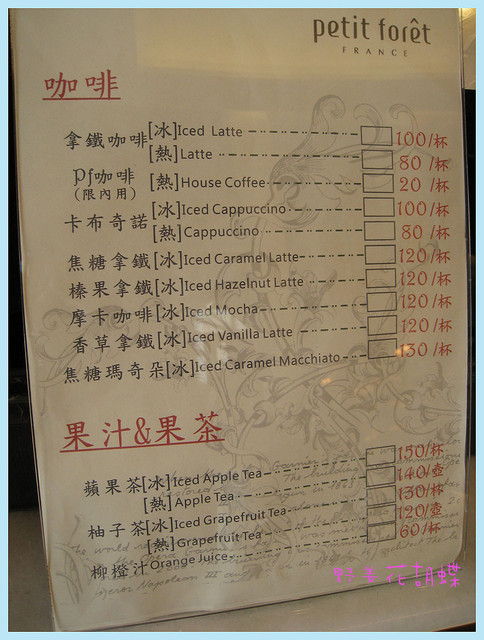 petit forêt
FRANCE
咖啡
拿鐵咖啡[冰]Iced Latte 100/杯
[熱]Latte 80/杯
Pf咖啡 [熱]House Coffee 20/杯
(限內用)
卡布奇諾[冰]Iced Cappuccino 100/杯
[熱]Cappuccino 80/杯
焦糖拿鐵[冰]Iced Caramel Latte 120/杯
榛果拿鐵[冰]Iced Hazelnut Latte 120/杯
摩卡咖啡[冰]Iced Mocha 120/杯
香草拿鐵[冰]Iced Vanilla Latte 120/杯
焦糖瑪奇朵[冰]Iced Caramel Macchiato 130/杯
果汁&果茶
蘋果茶[冰]Iced Apple Tea 150/杯
[熱]Apple Tea 140/壺
柚子茶[冰]Iced Grapefruit Tea 130/杯
[熱]Grapefruit Tea 120/壺
柳橙汁Orange Juice 60/杯